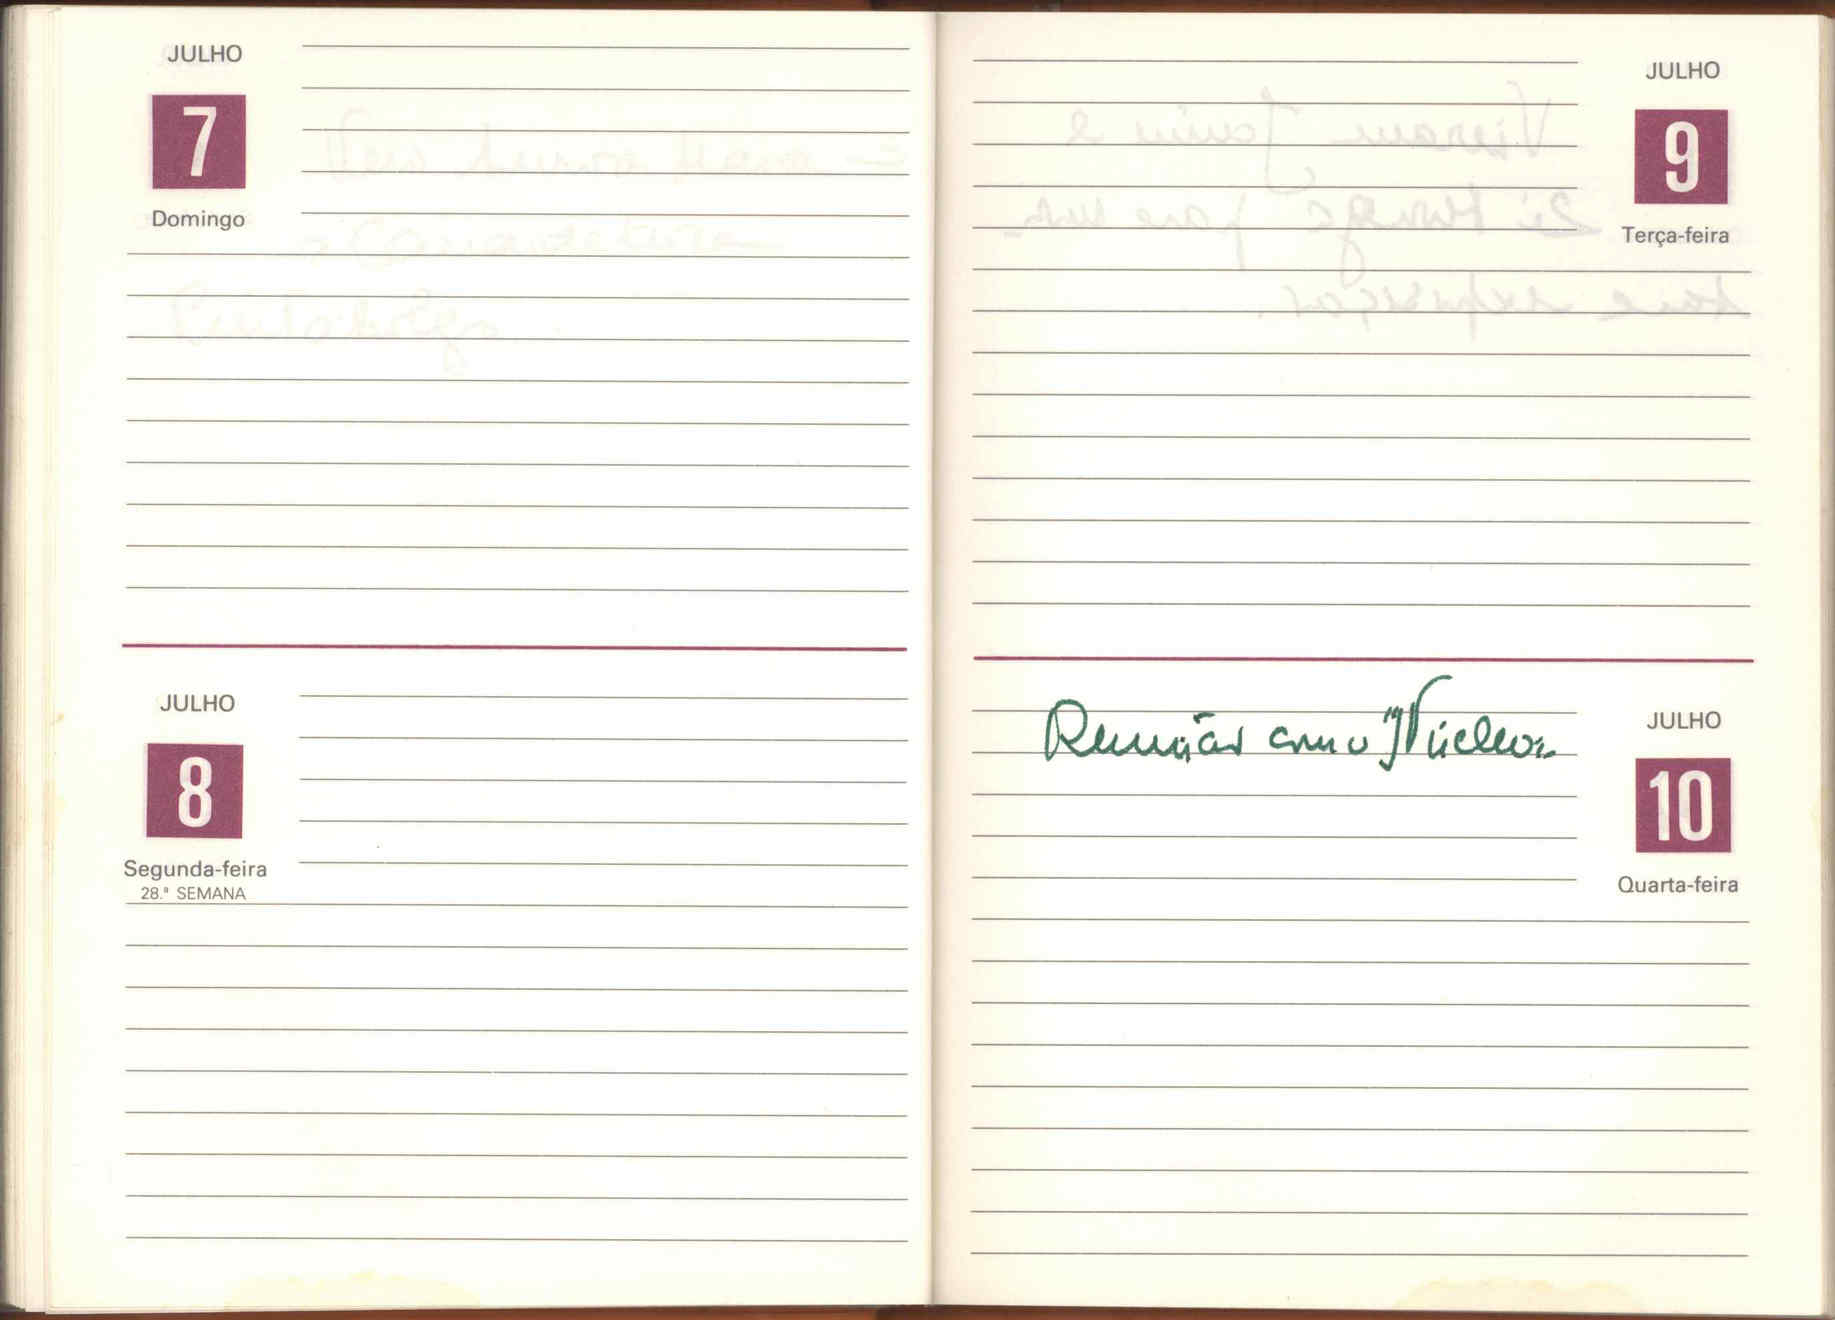 JULHO
7
Domingo
JULHO
8
Segunda-feira
28.ª SEMANA
JULHO
9
Terça-feira
Reunião com o Núcleo.
JULHO
10
Quarta-feira